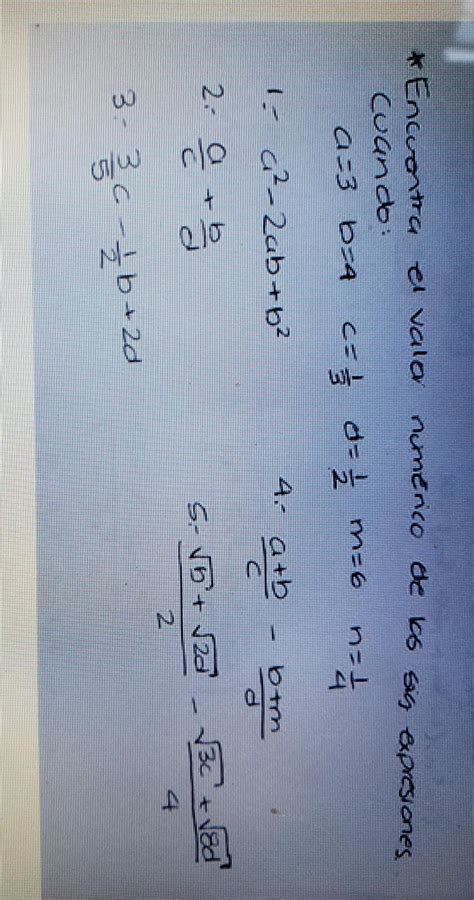 *Encuentra el valor numérico de las sig expresiones
cuando:
a=3 b=4 c=1/3 d=1/2 m=6 n=1/4
1.- a²-2ab+b²
2.- a/c + b/d
3.- 3/5c - 1/2b+2d
4.- a+b/c - b+m/d
5.- √b + √2d/2 - √3c + √8d/4